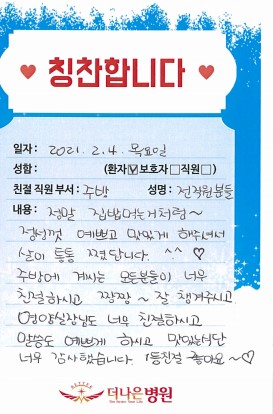 칭찬합니다
일자: 2021. 2. 4. 목요일
성함: (환자☑보호자□직원□)
친절 직원 부서: 주방 성명: 전직원분들
내용: 정말 집밥먹는거처럼~
정성껏 예쁘고 맛있게 해주셔서
살이 통통 쪘답니다. ^.^ ♡
주방에 계시는 모든분들이 너무
친절하시고 짱짱~ 잘 챙겨주시고
영양실장님도 너무 친절하시고
말씀도 예쁘게 하시고 맛있는식단
너무 감사했습니다. 1등친절 좋아요~♡
BETTER
더나은병원